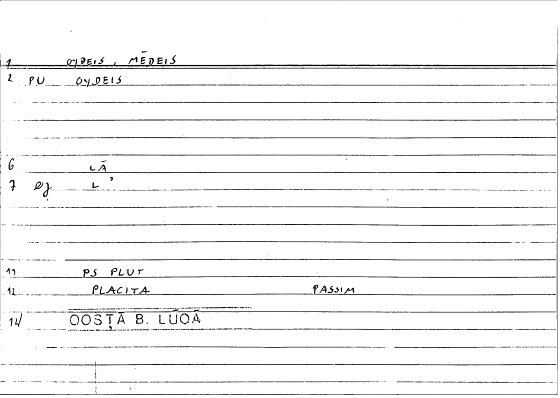 1 OYDEIS, MĒDEIS
2 PU OYDEIS
6 LĀ
7 eg L'
11 PS PLUT
12 PLACITA PASSIM
14/ OOSTĀ B. LŪOĀ